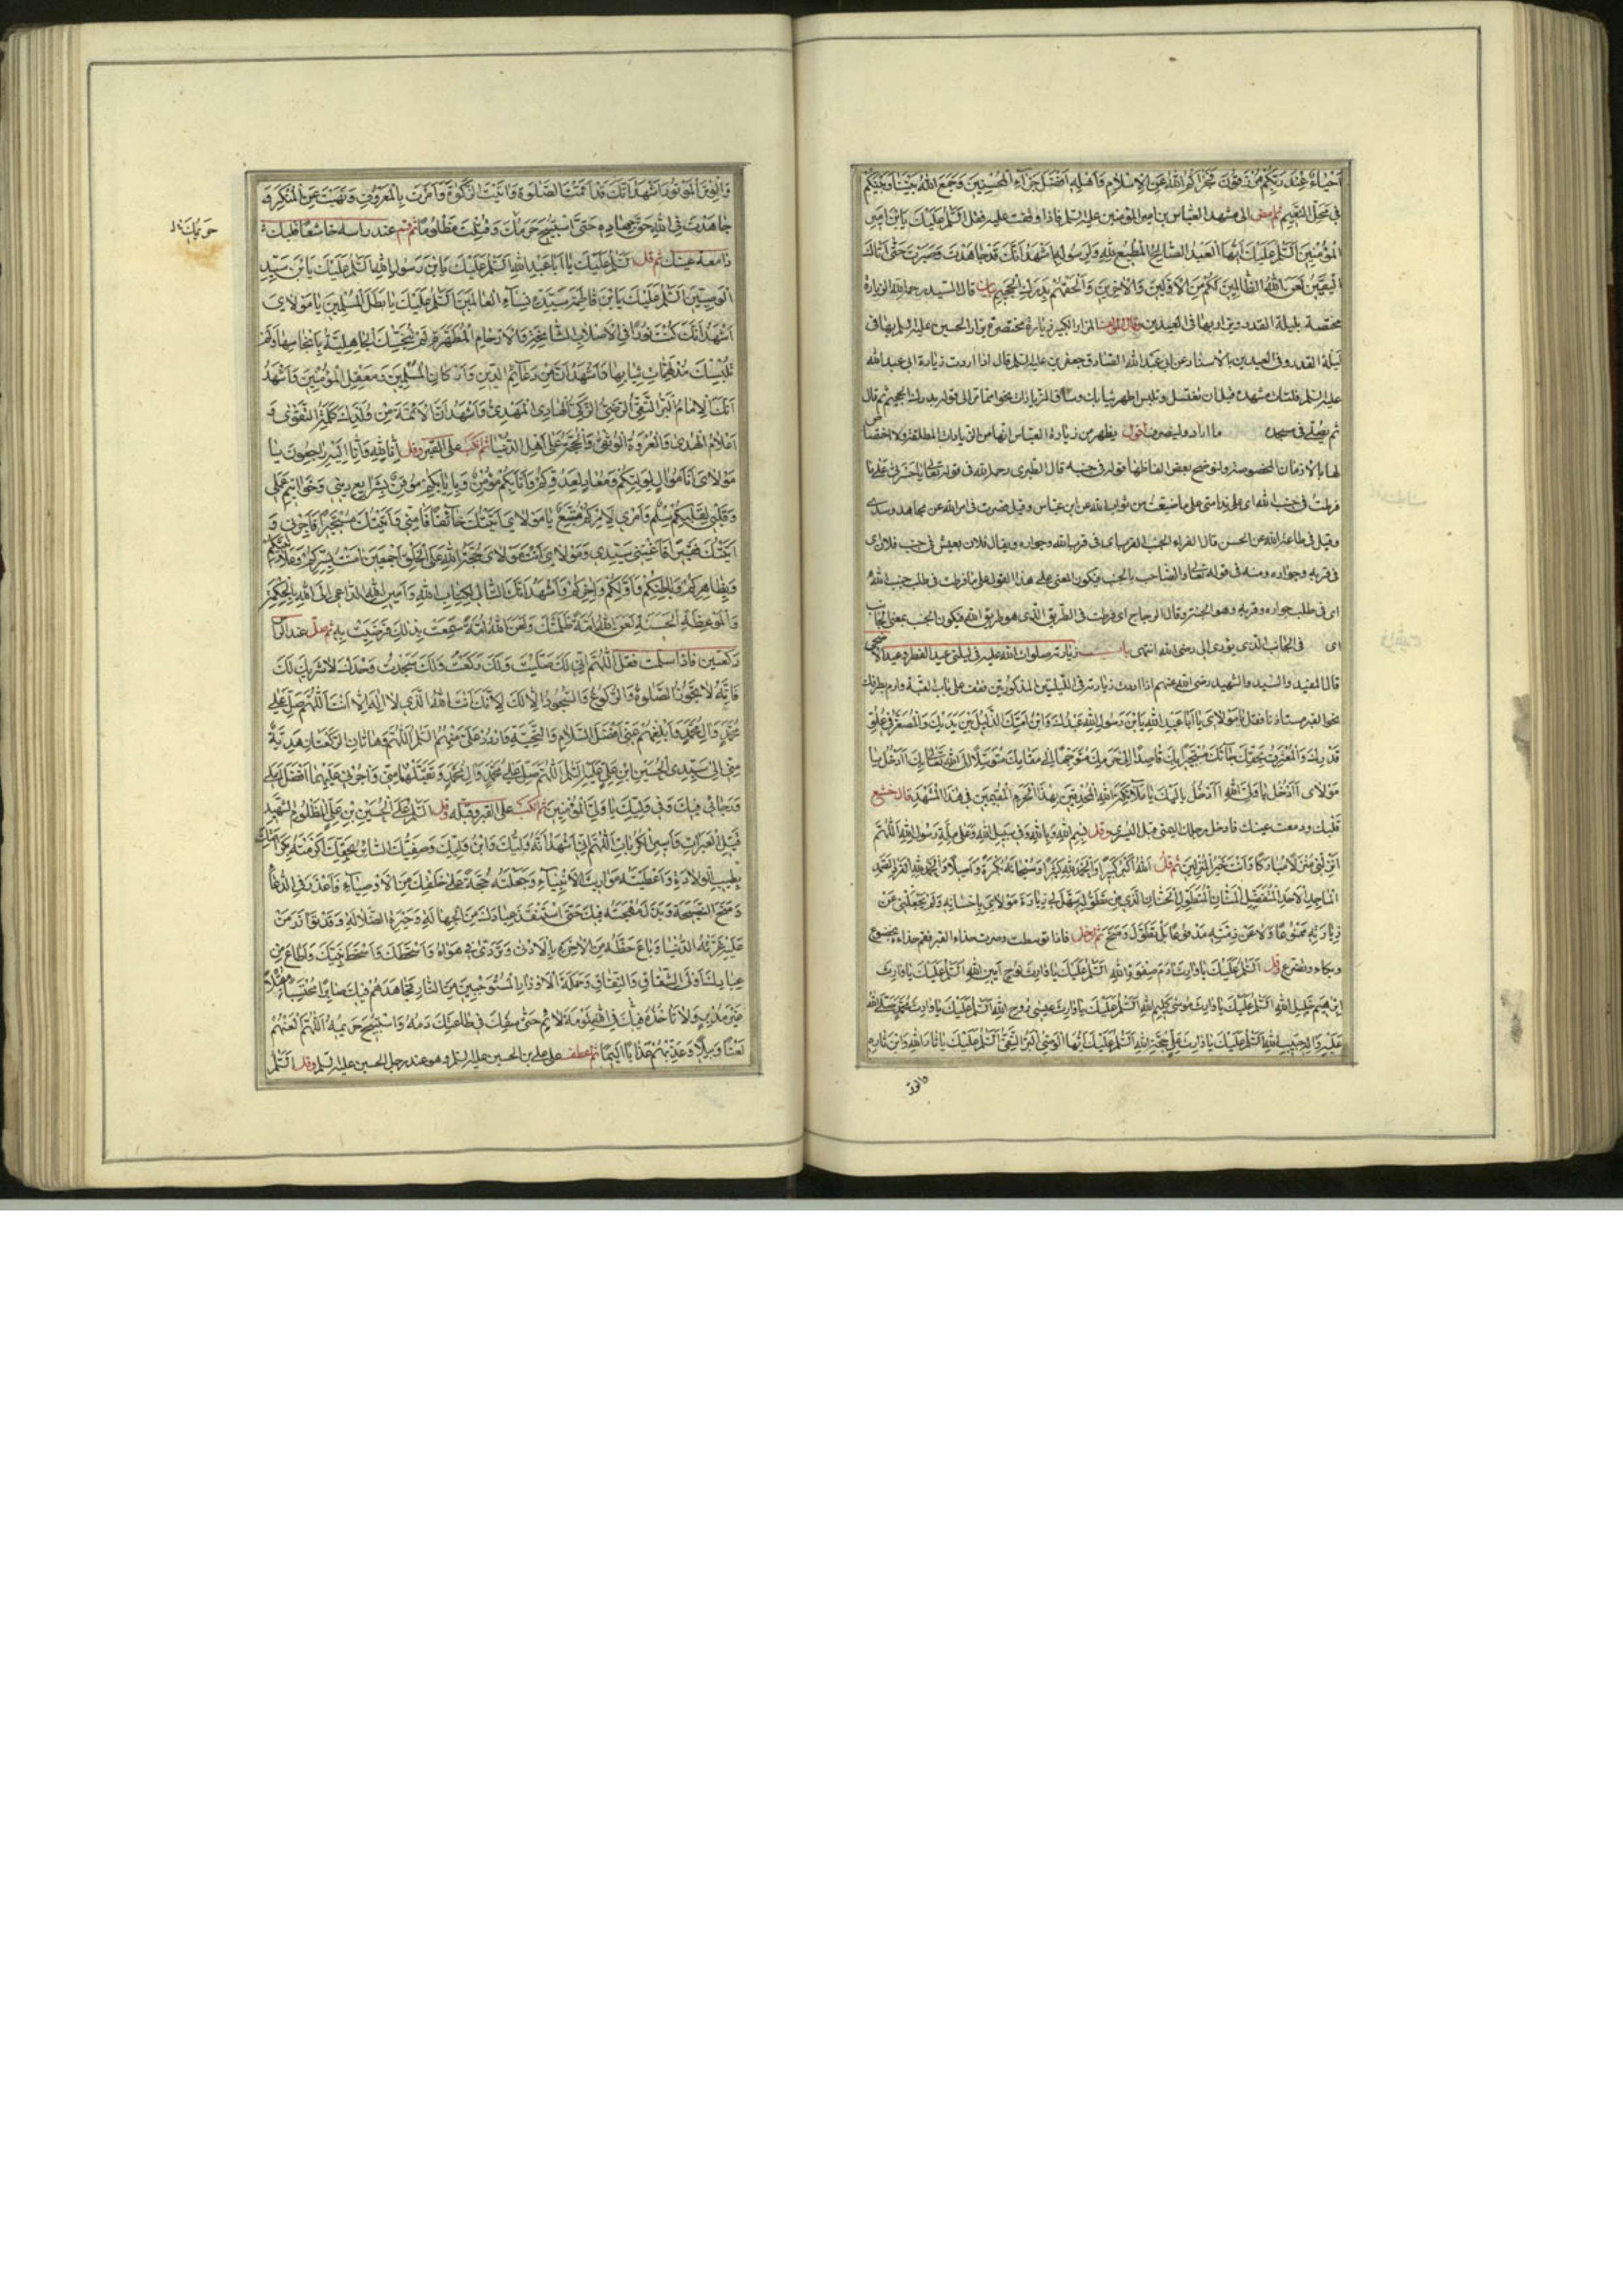 اَحْيَاءٌ عِنْدَ رَبِّكُمْ تُرْزَقُونَ فَجَزَاكُمُ اللهُ عَنِ الْاِسْلَامِ وَاَهْلِهِ اَفْضَلَ جَزَاءِ الْمُحْسِنِينَ وَجَمَعَ اللهُ بَيْنَنَا وَبَيْنَكُمْ
فِي مَحَلِّ النَّعِيمِ ثم امض الى مشهد العباس بن امير المؤمنين عليه السلم فاذا وقفت عليه فقل اَلسَّلَمُ عَلَيْكَ يَا بْنَ اَمِيرِ
الْمُؤْمِنِينَ اَلسَّلَمُ عَلَيْكَ اَيُّهَا الْعَبْدُ الصَّالِحُ الْمُطِيعُ لِلّٰهِ وَلِرَسُولِهِ اَشْهَدُ اَنَّكَ قَدْ جَاهَدْتَ وَصَبَرْتَ حَتّٰى اَتَاكَ
الْيَقِينُ لَعَنَ اللهُ الظَّالِمِينَ لَكُمْ مِنَ الْاَوَّلِينَ وَالْاٰخِرِينَ وَاَلْحَقَهُمْ بِدَرَكِ الْجَحِيمِ بيان قال السيد رحمه الله الزيارة
مختصة بليلة القدر ويزار بها في العيدين وقال مؤلف المزار الكبير زيارة مختصرة يزار الحسين عليه السلم بها في
ليلة القدر وفي العيدين بالاسناد عن ابي عبد الله الصادق جعفر بن عليه السلم قال اذا اردت زيارة ابي عبد الله
عليه السلم فلتات مشهده قبل ان تغتسل وتلبس اطهر ثيابك وساق الزيارات نحوا مما مر الى قوله بدرك الجحيم ثم قال
ثم يصلي في مسجده ما اراد ولينصرف اقول يظهر من زيارة العباس انها من الزيارات المطلقة ولا اختصاص
لها بالازمان المخصوصة ولنوضح بعض الفاظها قوله في جنبه قال الطبرسي رحمه الله في قوله تعالى يا حسرتى على ما
فرطت في جنب الله اي على ندامتي على ما ضيعت من ثواب الله عن ابن عباس وقيل قصرت في امر الله عن مجاهد وسدي
وقيل في طاعة الله عن الحسن قال الفراء الجنب القرب اى في قرب الله وجواره ويقال فلان يعيش في جنب فلان اى
في قربه وجواره ومنه في قوله تعالى والصاحب بالجنب فيكون المعنى على هذا القول على ما فرطت في طلب جنب الله
اى في طلب جواره وقربه وهو الجنة وقال الزجاج اى فرطت في الطريق الذي هو طريق الله فيكون الجنب بمعنى الجانب
اى في الجانب الذى يؤدى الى رضى الله انتهى باب زيارته صلوات الله عليه في ليلتى عيد الفطر وعيد الاضحى
قال المفيد والسيد والشهيد رضى الله عنهم اذا اردت زيارته في الليلتين المذكورتين فقف على باب القبة وارم بطرفك
نحو القبر مستاذنا فقل يَا مَوْلَايَ يَا اَبَا عَبْدِ اللهِ يَا بْنَ رَسُولِ اللهِ عَبْدُكَ وَابْنُ اَمَتِكَ الذَّلِيلُ بَيْنَ يَدَيْكَ وَالْمُصَغَّرُ فِي عُلُوِّ
قَدْرِكَ وَالْمُعْتَرِفُ بِحَقِّكَ جَاءَكَ مُسْتَجِيرًا بِكَ قَاصِدًا اِلٰى حَرَمِكَ مُتَوَجِّهًا اِلٰى مَقَامِكَ مُتَوَسِّلًا اِلَى اللهِ تَعَالٰى بِكَ ءَاَدْخُلُ يَا
مَوْلَاىَ ءَاَدْخُلُ يَا وَلِيَّ اللهِ ءَاَدْخُلُ يَا مَلَائِكَةَ اللهِ الْمُحْدِقِينَ بِهٰذَا الْحَرَمِ الْمُقِيمِينَ فِي هٰذَا الْمَشْهَدِ فان خشع
قلبك ودمعت عينك فادخل برجلك اليمنى قبل اليسرى وقل بِسْمِ اللهِ وَبِاللهِ وَفِي سَبِيلِ اللهِ وَعَلٰى مِلَّةِ رَسُولِ اللهِ اَللّٰهُمَّ
اَنْزِلْنِي مُنْزَلًا مُبَارَكًا وَاَنْتَ خَيْرُ الْمُنْزِلِينَ ثم قل اَللهُ اَكْبَرُ كَبِيرًا وَالْحَمْدُ لِلّٰهِ كَثِيرًا وَسُبْحَانَ اللهِ بُكْرَةً وَاَصِيلًا وَالْحَمْدُ لِلّٰهِ الْفَرْدِ الصَّمَدِ
الْمَاجِدِ الْاَحَدِ الْمُتَفَضِّلِ الْمَنَّانِ الْمُتَطَوِّلِ الْحَنَّانِ الَّذِي مِنْ تَطَوُّلِهِ سَهَّلَ لِي زِيَارَةَ مَوْلَايَ بِاِحْسَانِهِ وَلَمْ يَجْعَلْنِي عَنْ
زِيَارَتِهِ مَمْنُوعًا وَلَا عَنْ ذِمَّتِهِ مَدْفُوعًا بَلْ تَطَوَّلَ وَمَنَحَ ثم ادخل فاذا توسطت وصرت حذاء القبر فقم حذاءه بخضوع
وبكاء وتضرع وقل اَلسَّلَمُ عَلَيْكَ يَا وَارِثَ اٰدَمَ صِفْوَةِ اللهِ اَلسَّلَمُ عَلَيْكَ يَا وَارِثَ نُوحٍ اَمِينِ اللهِ اَلسَّلَمُ عَلَيْكَ يَا وَارِثَ
اِبْرٰهِيمَ خَلِيلِ اللهِ اَلسَّلَمُ عَلَيْكَ يَا وَارِثَ مُوسٰى كَلِيمِ اللهِ اَلسَّلَمُ عَلَيْكَ يَا وَارِثَ عِيسٰى رُوحِ اللهِ اَلسَّلَمُ عَلَيْكَ يَا وَارِثَ مُحَمَّدٍ صَلَّى اللهُ
عَلَيْهِ وَاٰلِهِ حَبِيبِ اللهِ اَلسَّلَمُ عَلَيْكَ يَا وَارِثَ عَلِيٍّ حُجَّةِ اللهِ اَلسَّلَمُ عَلَيْكَ اَيُّهَا الْوَصِيُّ الْبَرُّ التَّقِيُّ اَلسَّلَمُ عَلَيْكَ يَا ثَارَ اللهِ وَابْنَ ثَارِهِ
والوتر
وَالْوِتْرَ الْمَوْتُورَ اَشْهَدُ اَنَّكَ قَدْ اَقَمْتَ الصَّلٰوةَ وَاٰتَيْتَ الزَّكٰوةَ وَاَمَرْتَ بِالْمَعْرُوفِ وَنَهَيْتَ عَنِ الْمُنْكَرِ وَ
جَاهَدْتَ فِي اللهِ حَقَّ جِهَادِهِ حَتَّى اسْتُبِيحَ حَرَمُكَ وَقُتِلْتَ مَظْلُومًا ثم قم عند راسه خاشعا قلبك
دامعة عينك ثم قل اَلسَّلَمُ عَلَيْكَ يَا اَبَا عَبْدِ اللهِ اَلسَّلَمُ عَلَيْكَ يَا بْنَ رَسُولِ اللهِ اَلسَّلَمُ عَلَيْكَ يَا بْنَ سَيِّدِ
الْوَصِيِّينَ اَلسَّلَمُ عَلَيْكَ يَا بْنَ فَاطِمَةَ سَيِّدَةِ نِسَاءِ الْعَالَمِينَ اَلسَّلَمُ عَلَيْكَ يَا بَطَلَ الْمُسْلِمِينَ يَا مَوْلَايَ
اَشْهَدُ اَنَّكَ كُنْتَ نُورًا فِي الْاَصْلَابِ الشَّامِخَةِ وَالْاَرْحَامِ الْمُطَهَّرَةِ لَمْ تُنَجِّسْكَ الْجَاهِلِيَّةُ بِاَنْجَاسِهَا وَلَمْ
تُلْبِسْكَ مِنْ مُدْلَهِمَّاتِ ثِيَابِهَا وَاَشْهَدُ اَنَّكَ مِنْ دَعَائِمِ الدِّينِ وَاَرْكَانِ الْمُسْلِمِينَ وَمَعْقِلِ الْمُؤْمِنِينَ وَاَشْهَدُ
اَنَّكَ الْاِمَامُ الْبَرُّ التَّقِيُّ الرَّضِيُّ الزَّكِيُّ الْهَادِي الْمَهْدِيُّ وَاَشْهَدُ اَنَّ الْاَئِمَّةَ مِنْ وُلْدِكَ كَلِمَةُ التَّقْوٰى وَ
اَعْلَامُ الْهُدٰى وَالْعُرْوَةُ الْوُثْقٰى وَالْحُجَّةُ عَلٰى اَهْلِ الدُّنْيَا ثم انكب على القبر وقل اِنَّا لِلّٰهِ وَاِنَّا اِلَيْهِ رَاجِعُونَ يَا
مَوْلَايَ اَنَا مُوَالٍ لِوَلِيِّكُمْ وَمُعَادٍ لِعَدُوِّكُمْ وَاَنَا بِكُمْ مُؤْمِنٌ وَبِاِيَابِكُمْ مُوقِنٌ بِشَرَايِعِ دِينِي وَخَوَاتِيمِ عَمَلِي
وَقَلْبِي لِقَلْبِكُمْ سِلْمٌ وَاَمْرِي لِاَمْرِكُمْ مُتَّبِعٌ يَا مَوْلَايَ اَتَيْتُكَ خَائِفًا فَاٰمِنِّي وَاَتَيْتُكَ مُسْتَجِيرًا فَاَجِرْنِي وَ
اَتَيْتُكَ فَقِيرًا فَاَغْنِنِي سَيِّدِي وَمَوْلَايَ اَنْتَ مَوْلَايَ حُجَّةُ اللهِ عَلَى الْخَلْقِ اَجْمَعِينَ اٰمَنْتُ بِسِرِّكُمْ وَعَلَانِيَتِكُمْ
وَبِظَاهِرِكُمْ وَبَاطِنِكُمْ وَاَوَّلِكُمْ وَاٰخِرِكُمْ وَاَشْهَدُ اَنَّكَ التَّالِي لِكِتَابِ اللهِ وَاَمِينُ اللهِ الدَّاعِي اِلَى اللهِ بِالْحِكْمَةِ
وَالْمَوْعِظَةِ الْحَسَنَةِ لَعَنَ اللهُ اُمَّةً ظَلَمَتْكَ وَلَعَنَ اللهُ اُمَّةً سَمِعَتْ بِذٰلِكَ فَرَضِيَتْ بِهِ ثم صل عند الراس
ركعتين فاذا سلمت فقل اَللّٰهُمَّ اِنِّي لَكَ صَلَّيْتُ وَلَكَ رَكَعْتُ وَلَكَ سَجَدْتُ وَحْدَكَ لَا شَرِيكَ لَكَ
فَاِنَّهُ لَا تَجُوزُ الصَّلٰوةُ وَالرُّكُوعُ وَالسُّجُودُ اِلَّا لَكَ لِاَنَّكَ اَنْتَ اللهُ الَّذِي لَا اِلٰهَ اِلَّا اَنْتَ اَللّٰهُمَّ صَلِّ عَلٰى
مُحَمَّدٍ وَاٰلِ مُحَمَّدٍ وَاَبْلِغْهُمْ عَنِّي اَفْضَلَ السَّلَامِ وَالتَّحِيَّةِ وَارْدُدْ عَلَيَّ مِنْهُمُ السَّلَمَ اَللّٰهُمَّ وَهَاتَانِ الرَّكْعَتَانِ هَدِيَّةٌ
مِنِّي اِلٰى سَيِّدِي الْحُسَيْنِ ابْنِ عَلِيٍّ عَلَيْهِ السَّلَمُ اَللّٰهُمَّ صَلِّ عَلٰى مُحَمَّدٍ وَاٰلِ مُحَمَّدٍ وَتَقَبَّلْهُمَا مِنِّي وَاجْزِنِي عَلَيْهِمَا اَفْضَلَ اَمَلِي
وَرَجَائِي فِيكَ وَفِي وَلِيِّكَ يَا وَلِيَّ الْمُؤْمِنِينَ ثم انكب على القبر وقبله وقل اَلسَّلَمُ عَلَى الْحُسَيْنِ بْنِ عَلِيٍّ الْمَظْلُومِ الشَّهِيدِ
قَتِيلِ الْعَبَرَاتِ وَاَسِيرِ الْكُرُبَاتِ اَللّٰهُمَّ اِنِّي اَشْهَدُ اَنَّهُ وَلِيُّكَ وَابْنُ وَلِيِّكَ وَصَفِيُّكَ الثَّائِرُ بِحَقِّكَ اَكْرَمْتَهُ بِكَرَامَتِكَ
بِطِيبِ الْوِلَادَةِ وَاَعْطَيْتَهُ مَوَارِيثَ الْاَنْبِيَاءِ وَجَعَلْتَهُ حُجَّةً عَلٰى خَلْقِكَ مِنَ الْاَوْصِيَاءِ فَاَعْذَرَ فِي الدُّعَاءِ
وَمَنَحَ النَّصِيحَةَ وَبَذَلَ مُهْجَتَهُ فِيكَ حَتَّى اسْتَنْقَذَ عِبَادَكَ مِنَ الْجَهَالَةِ وَحَيْرَةِ الضَّلَالَةِ وَقَدْ تَوَازَرَ مَنْ
عَلَيْهِ غَرَّتْهُ الدُّنْيَا وَبَاعَ حَظَّهُ مِنَ الْاٰخِرَةِ بِالْاَدْنٰى وَتَرَدّٰى فِي هَوَاهُ وَاَسْخَطَكَ وَاَسْخَطَ نَبِيَّكَ وَاَطَاعَ مِنْ
عِبَادِكَ اُولِي الشِّقَاقِ وَالنِّفَاقِ وَحَمَلَةَ الْاَوْزَارِ الْمُسْتَوْجِبِينَ مِنَ النَّارِ فَجَاهَدَهُمْ فِيكَ صَابِرًا مُحْتَسِبًا مُقْبِلًا
غَيْرَ مُدْبِرٍ وَلَا تَأْخُذُهُ فِيكَ فِي اللهِ لَوْمَةُ لَائِمٍ حَتّٰى سُفِكَ فِي طَاعَتِكَ دَمُهُ وَاسْتُبِيحَ حَرِيمُهُ اَللّٰهُمَّ الْعَنْهُمْ
لَعْنًا وَبِيلًا وَعَذِّبْهُمْ عَذَابًا اَلِيمًا ثم اعطف على علي بن الحسين عليه السلم وهو عند رجل الحسين عليه السلم وقل اَلسَّلَمُ